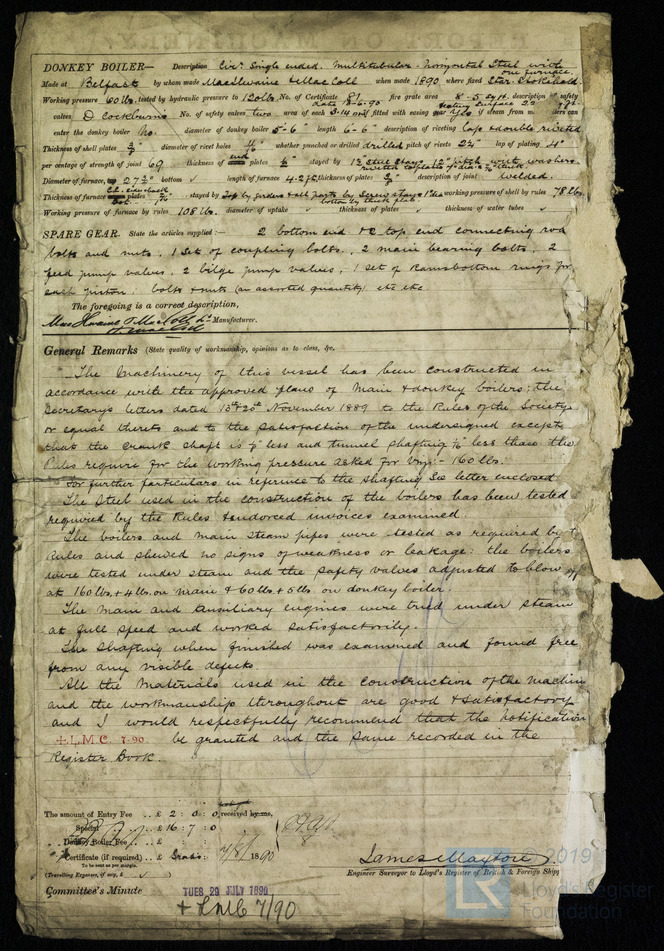 DONKEY BOILER— Description Cirr. Single ended. Multitubular - Horizontal Steel with one furnace
Made at Belfast by whom made MacIlwaine & MacColl when made 1890 where fixed Star. Stokehold
Working pressure 60 lbs. tested by hydraulic pressure to 120 lbs. No. of Certificate 81 fire grate area description of safety
date 18-6-90 heating surface
valves D Cockburns No. of safety valves two area of each 3.14 fitted with easing if steam from m ders can
enter the donkey boiler No. diameter of donkey boiler 5-6" length 6-6" description of riveting lap & double riveted
Thickness of shell plates diameter of rivet holes whether punched or drilled drilled pitch of rivets lap of plating 4"
per centage of strength of joint 69 thickness of end plates stayed by steel stays 12" pitch with washers
Diameter of furnace, top bottom length of furnace thickness of plates description of joint welded.
Thickness of furnace plates stayed by Top by girders & all parts by screw stays working pressure of shell by rules 78 lbs.
Working pressure of furnace by rules 108 lbs. diameter of uptake thickness of plates thickness of water tubes
SPARE GEAR. State the articles supplied:— 2 bottom end & 2 top end connecting rod
bolts and nuts, 1 set of coupling bolts, 2 main bearing bolts, 2
feed pump valves, 2 bilge pump valves, 1 set of Ramsbottom rings for
each piston. bolts & nuts (an assorted quantity) etc etc.
The foregoing is a correct description,
Manufacturer.
General Remarks (State quality of workmanship, opinions as to class, &c.
The Machinery of this vessel has been constructed in
accordance with the approved plans of Main & donkey boilers; the
Secretarys letters dated November 1889 to the Rules of the Society
or equal thereto and to the satisfaction of the undersigned except
that the crank shaft is less and tunnel shafting less than the
Rules require for the working pressure asked for viz:- 160 lbs.
For further particulars in reference to the shafting See letter enclosed
The Steel used in the construction of the boilers has been tested
required by the Rules & endorced invoices examined.
The boilers and main steam pipes were tested as required by t
Rules and shewed no signs of weakness or leakage: the boilers
were tested under steam and the safety valves adjusted to blow off
at 160 lbs. + 4 lbs. on main & 60 lbs + 5 lbs on donkey boiler.
The Main and Auxiliary engines were tried under steam
at full speed and worked satisfactorily.
The Shafting when finished was examined and found free
from any visible defects.
All the materials used in the construction of the machin
and the workmanship throughout are good & satisfactory
and I would respectfully recommend that the notification
+ L.M.C. 7-90. be granted and the same recorded in the
Register Book.
The amount of Entry Fee .. £ 2 : 0 : 0 received by me,
Special .. £ 16 : 7 : 0
Donkey Boiler Fee .. £
Certificate (if required) .. £ Gratis 1890
To be sent as per margin.
(Travelling Expenses, if any, £
James Maytor
Engineer Surveyor to Lloyd's Register of British & Foreign Shipp
Committee's Minute TUES 29 JULY 1890
+ LMC 7/90
© 2019
LR
Lloyd's Register
Foundation